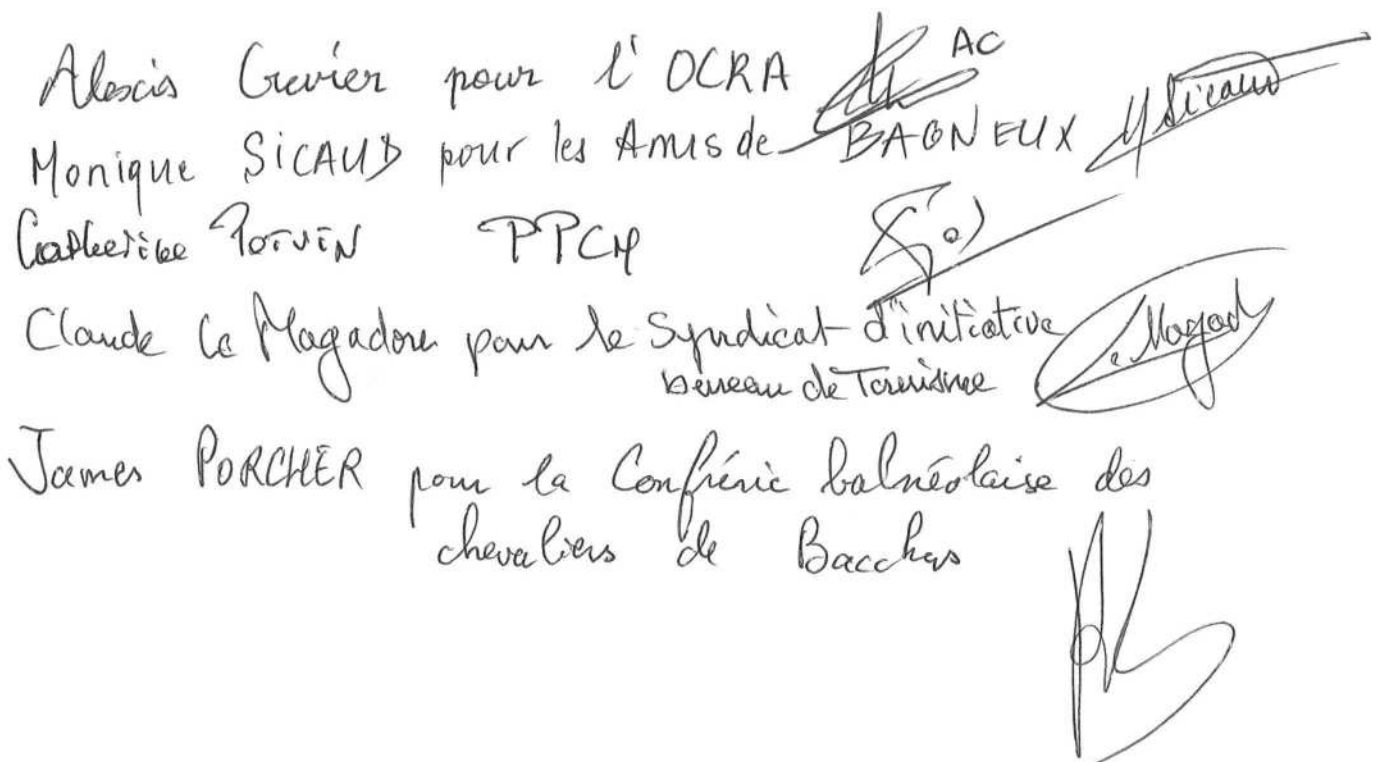 Alexis Crevier pour l'OCRA AC
Monique SICAUD pour les Amis de BAGNEUX MSicaud
Catherine POTVIN PPCM
Claude Le Magadoure pour le Syndicat d'initiative
bureau de Tourisme Magad
James PORCHER pour la Confrérie balnéolaise des
chevaliers de Bacchus